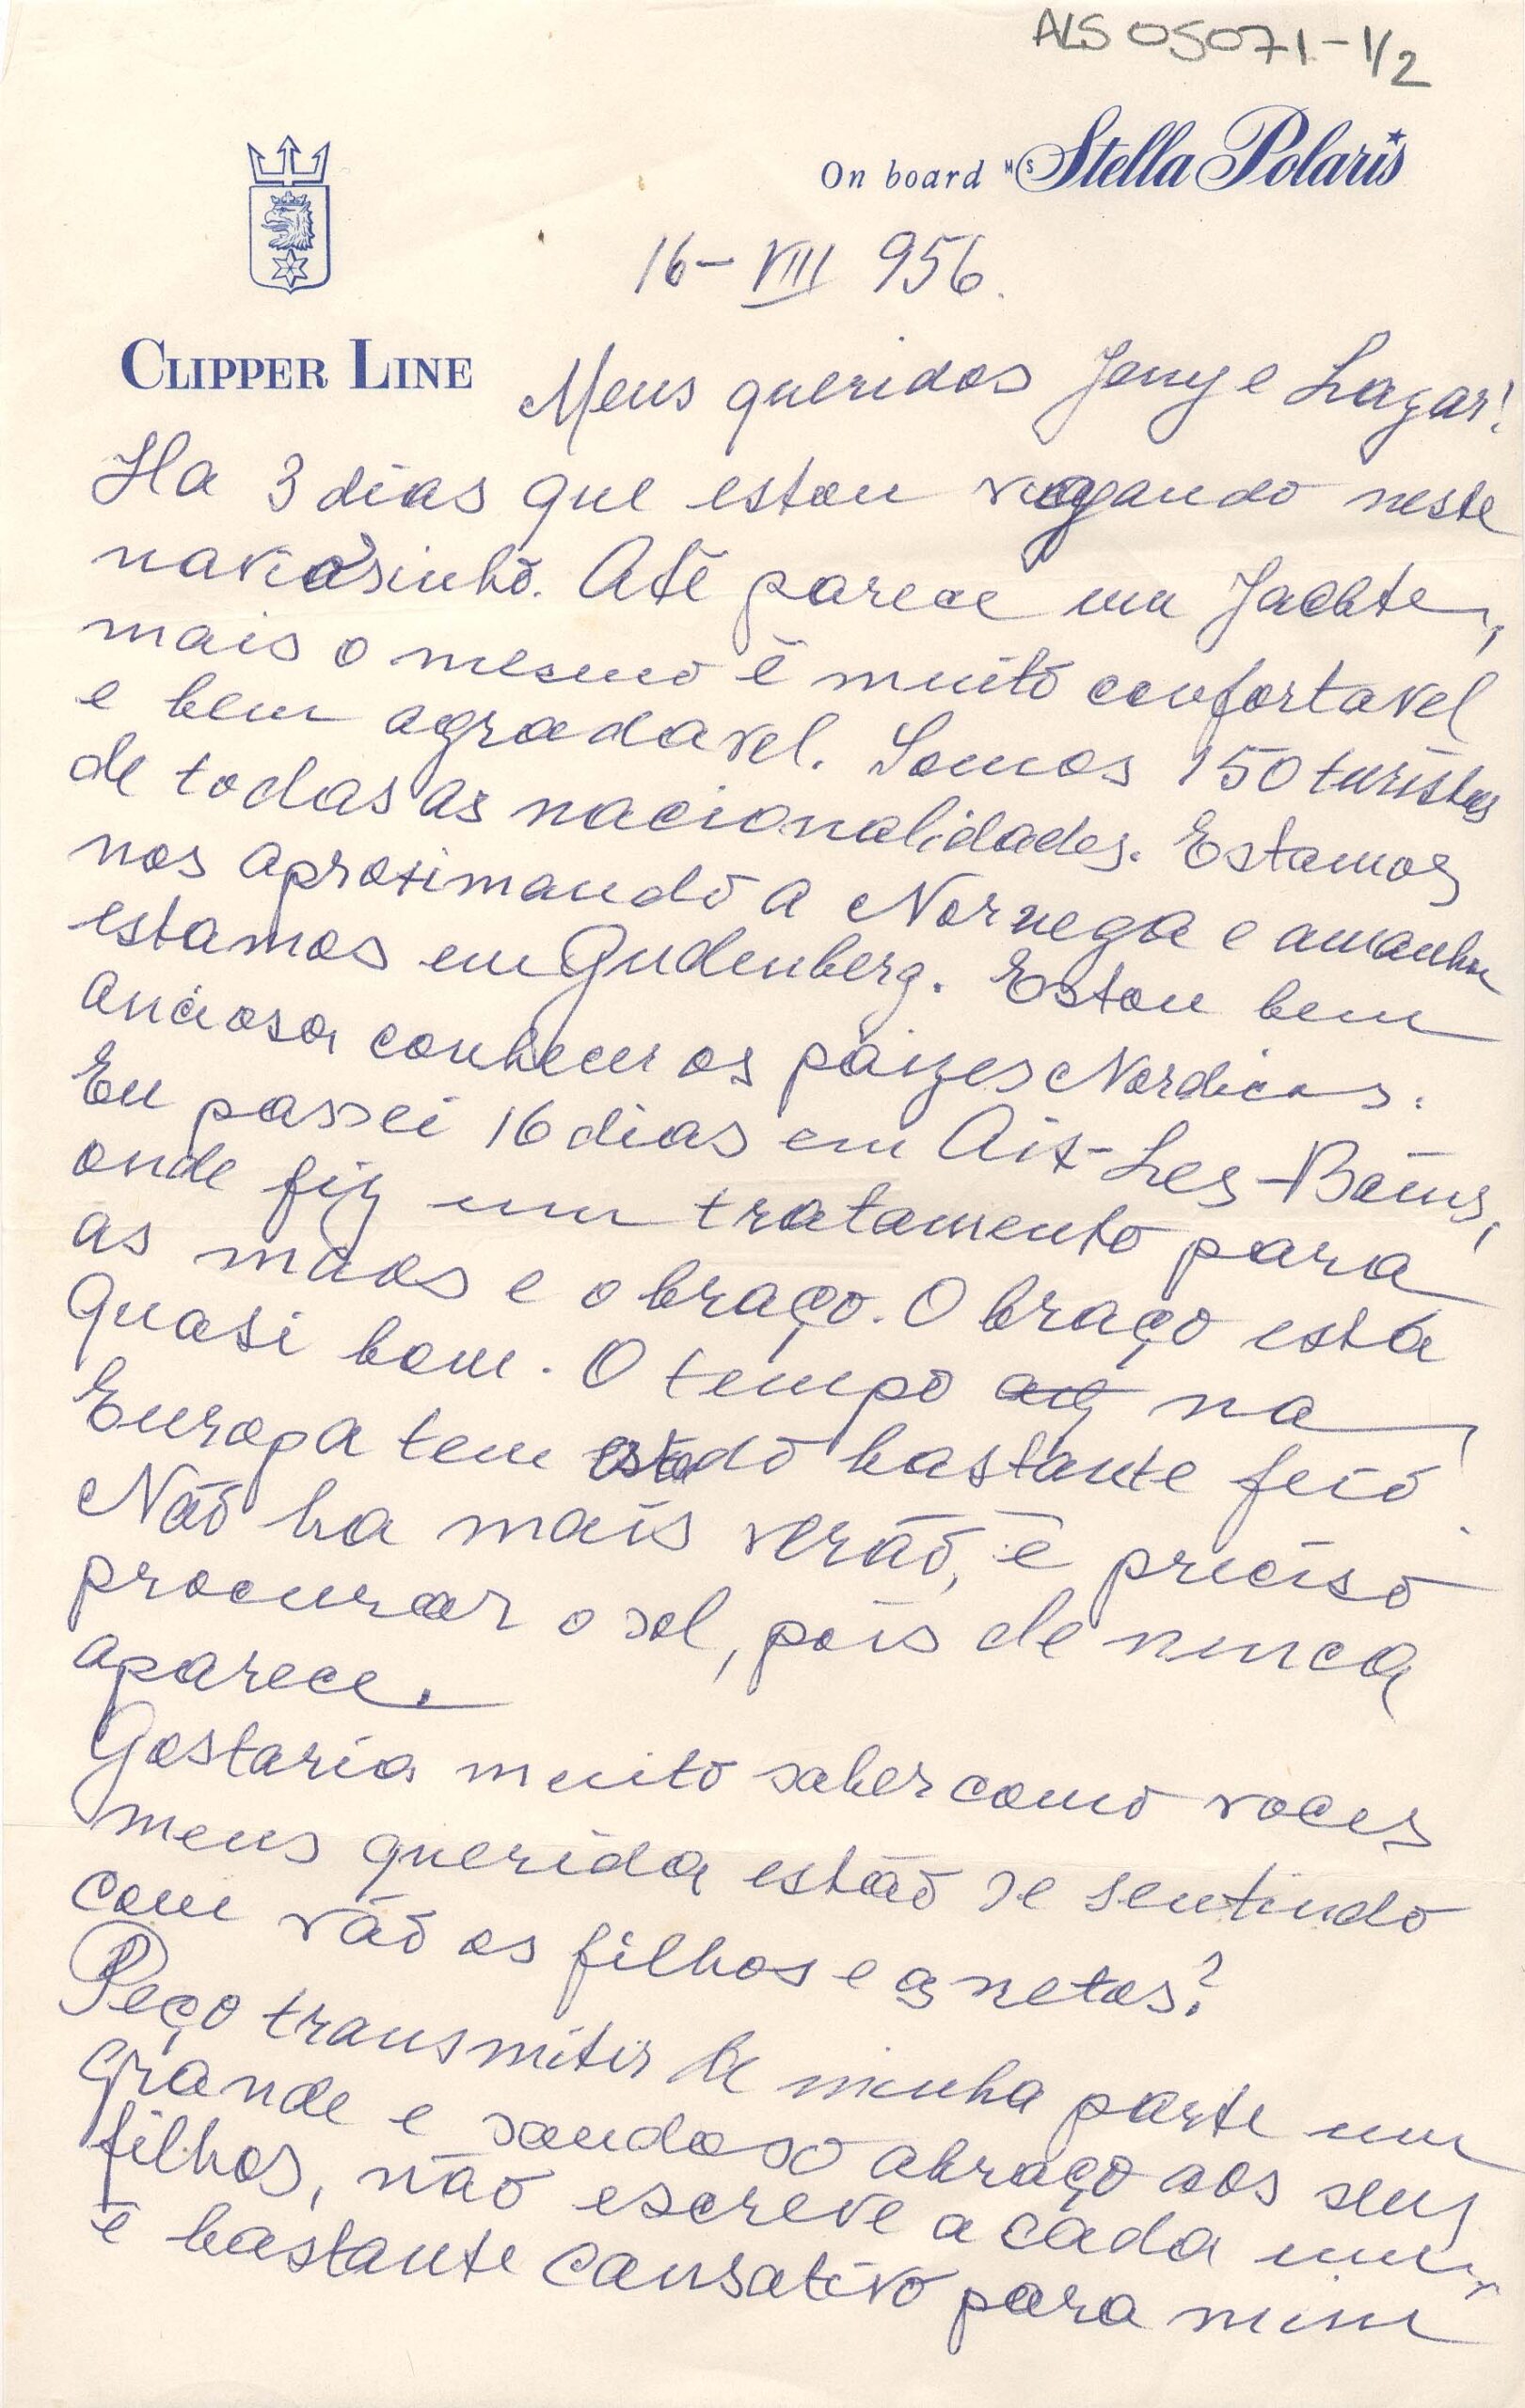 ALS 05071-1/2
On board M/S Stella Polaris
16-VIII 956.
CLIPPER LINE
Meus queridos Jeny e Lazar!
Ha 3 dias que estou vagando neste
naviosinho. Até parece um Jachte,
mais o mesmo é muito confortavel
e bem agradavel. Somos 150 turistas
de todas as nacionalidades. Estamos
nos aproximando a Noruega e amanha
estamos em Gudenberg. Estou bem
anciosa conhecer os paizes Nordicos.
Eu passei 16 dias em Aix-Les-Bains,
onde fiz um tratamento para
as mãos e o braço. O braço está
quasi bom. O tempo na
Europa tem estado bastante feio.
Não ha mais verão, é preciso
procurar o sol, pois ele nunca
aparece.
Gostaria muito saber como voces
meus querida estão se sentindo
com vão os filhos e os netos?
Peço transmitir de minha parte um
grande e saudoso abraço aos seus
filhos, não escreve a cada um,
é bastante cansativo para mim